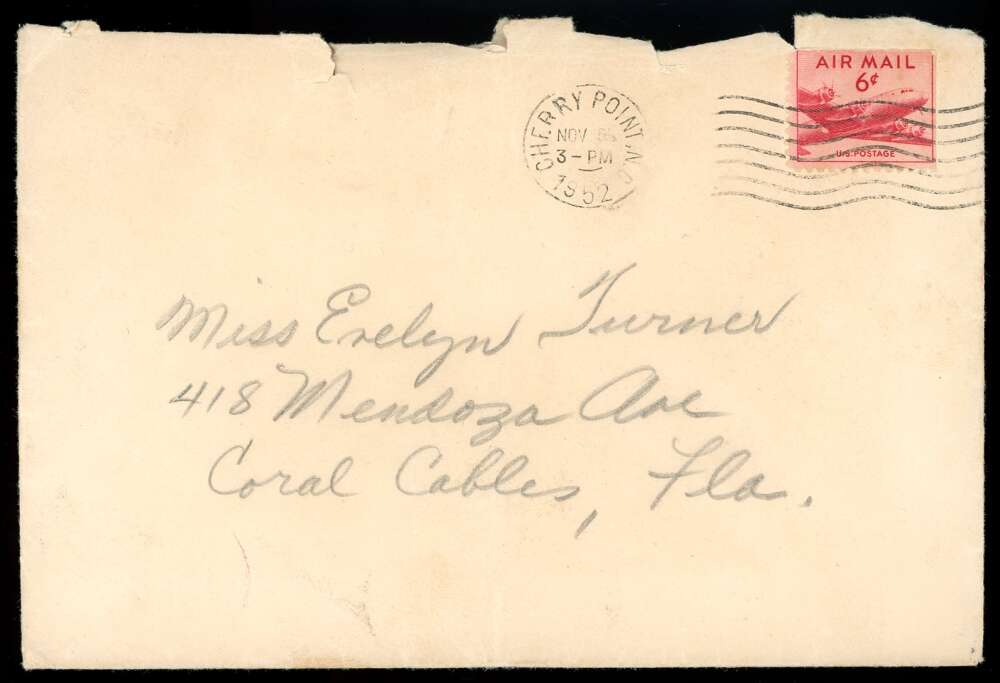 AIR MAIL
6¢
U.S. POSTAGE
CHERRY POINT, N.C.
NOV
3-PM
1952
Miss Evelyn Turner
418 Mendoza Ave
Coral Cables, Fla.